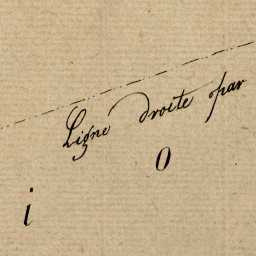 Ligne droite par
i O